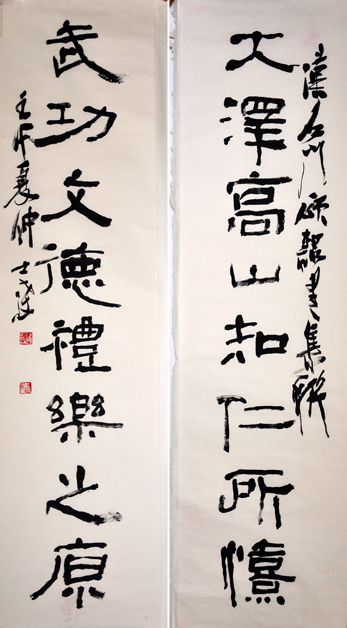 漢石門頌集聯
大澤高山知仁所憘
武功文德禮樂之原
壬辰夏仲士